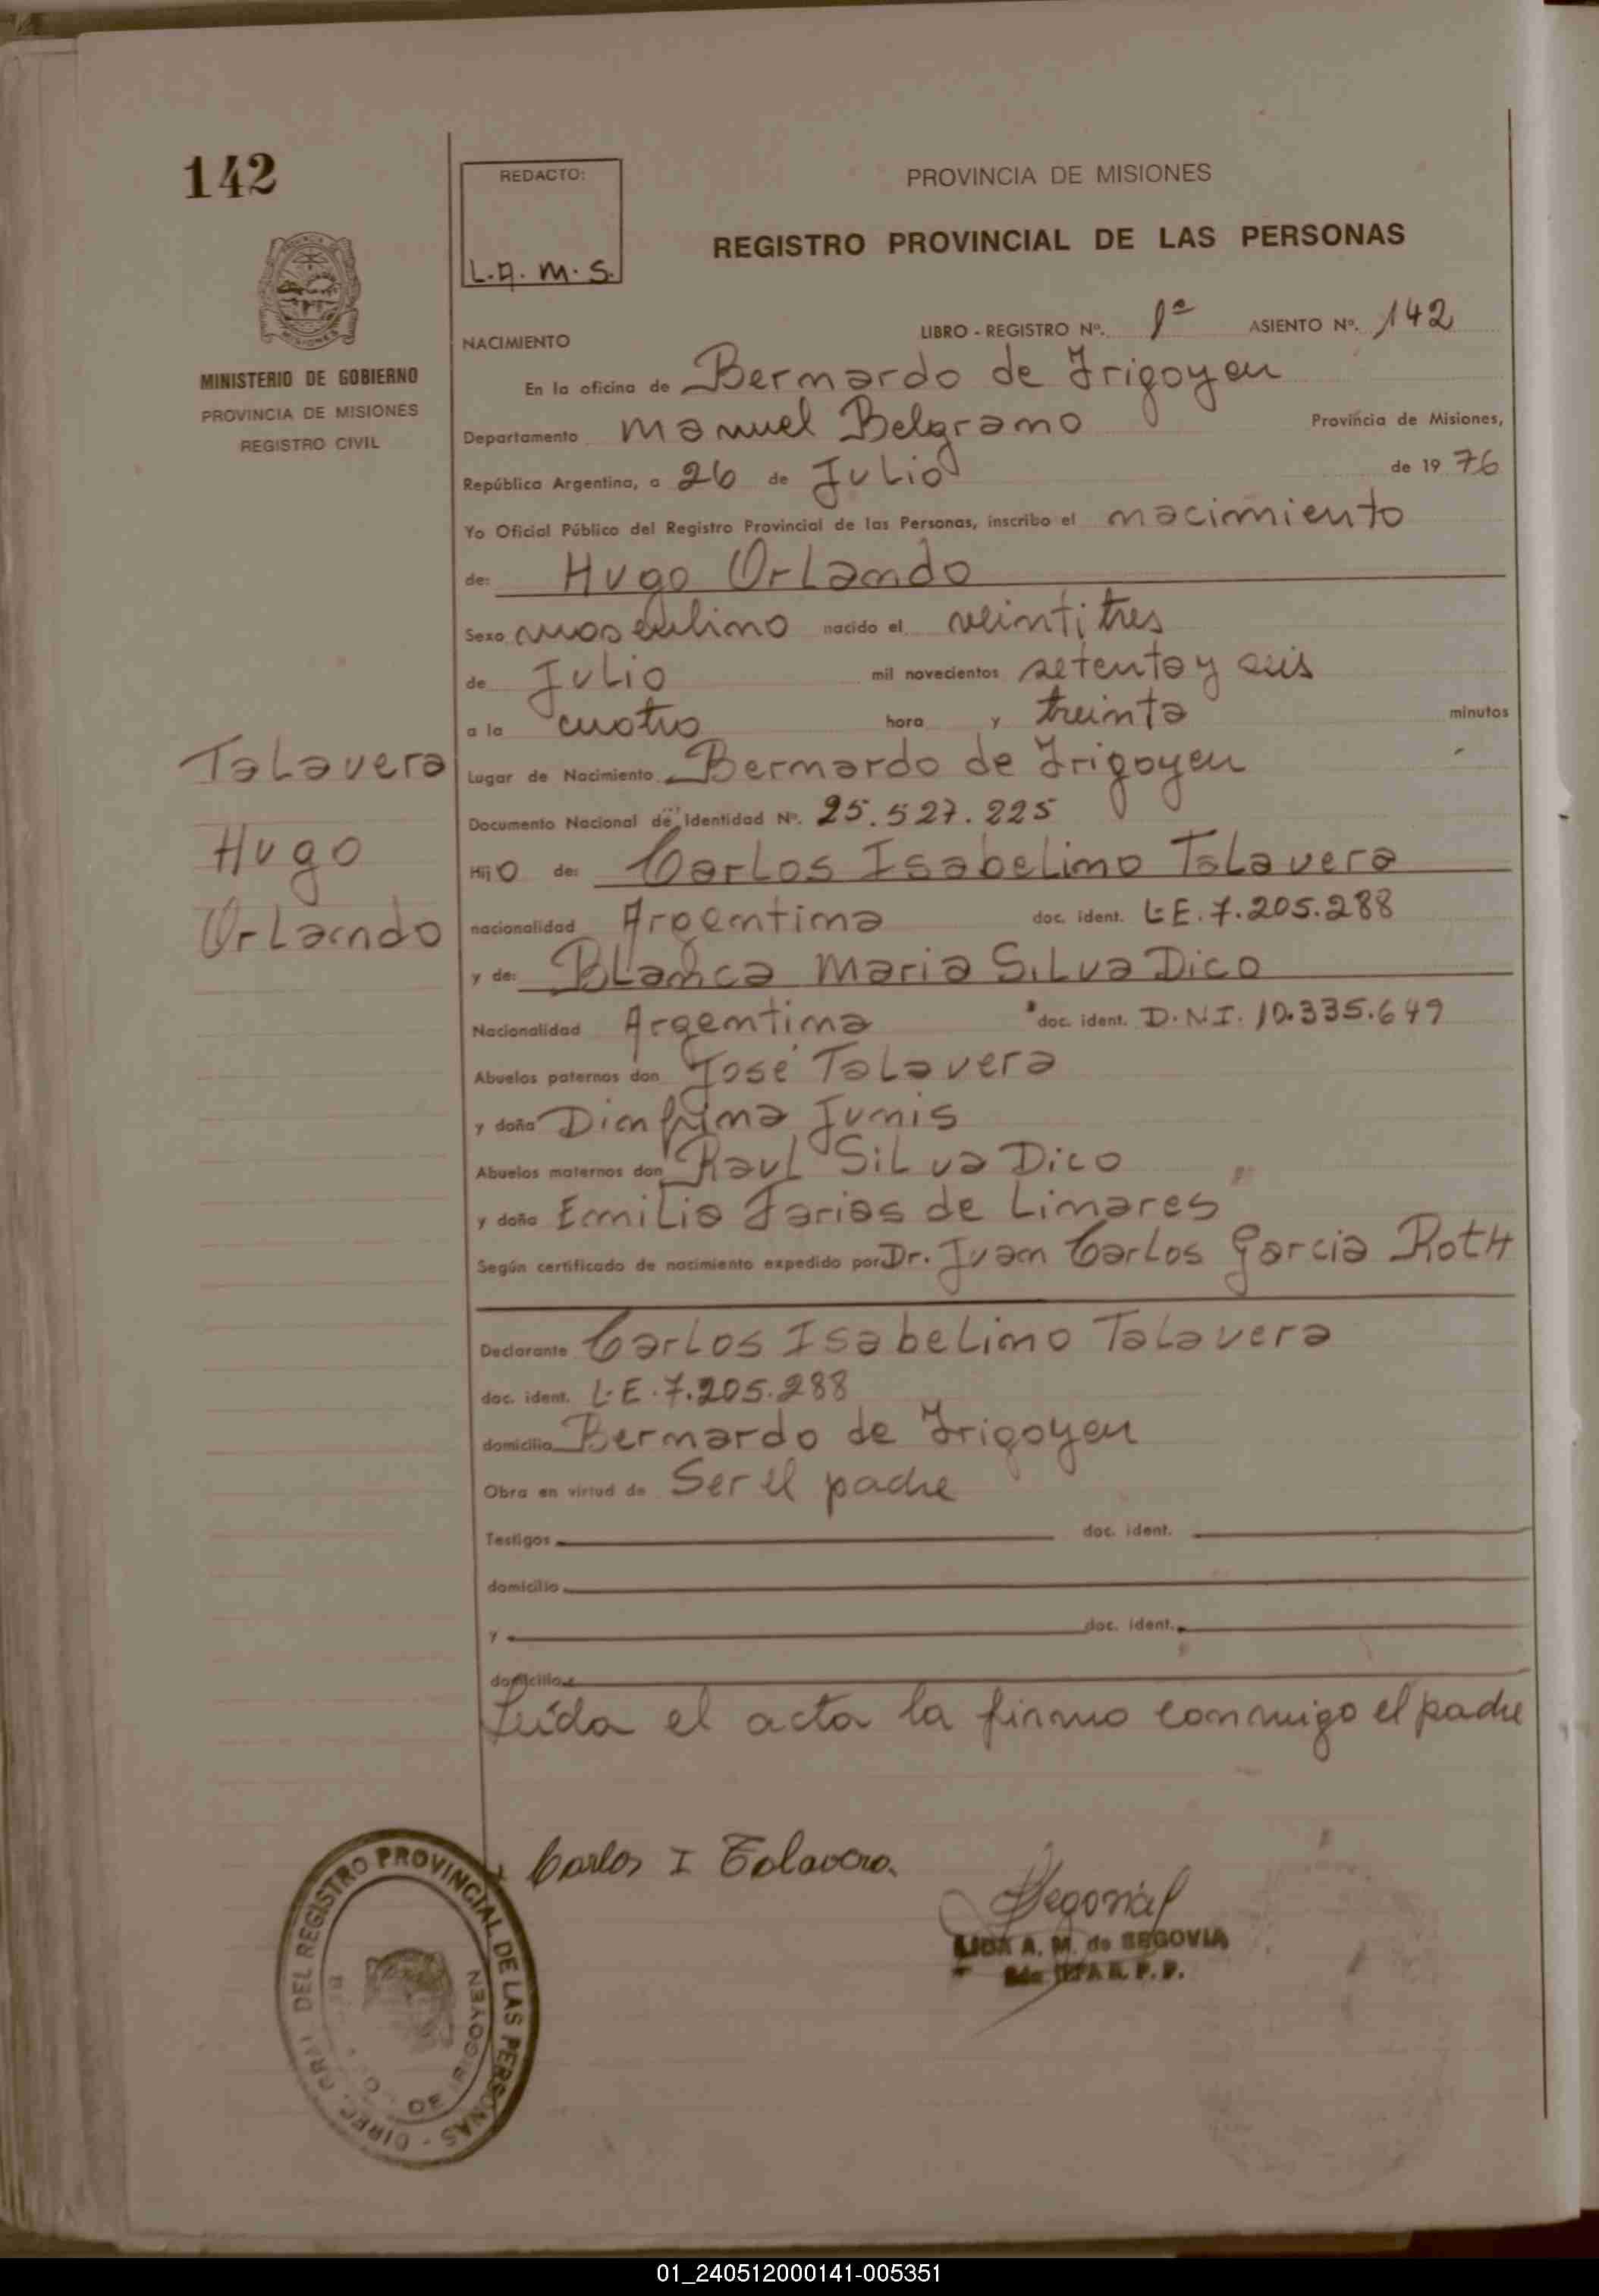 142
REDACTO:
L.A.M.S.
PROVINCIA DE MISIONES
REGISTRO PROVINCIAL DE LAS PERSONAS
MINISTERIO DE GOBIERNO
PROVINCIA DE MISIONES
REGISTRO CIVIL
NACIMIENTO
LIBRO - REGISTRO Nº. 1º ASIENTO Nº. 142
En la oficina de Bernardo de Irigoyen
Departamento Manuel Belgrano Provincia de Misiones,
República Argentina, a 26 de Julio de 1976
Yo Oficial Público del Registro Provincial de las Personas, inscribo el nacimiento
de: Hugo Orlando
Sexo masculino nacido el veintitres
de Julio mil novecientos setenta y seis
a la cuatro hora y treinta minutos
Talavera
Hugo
Orlando
Lugar de Nacimiento Bernardo de Irigoyen
Documento Nacional de Identidad Nº. 25.527.225
Hijo de: Carlos Isabelino Talavera
nacionalidad Argentina doc. ident. L.E. 7.205.288
y de: Blanca Maria Silva Dico
Nacionalidad Argentina doc. ident. D.N.I. 10.335.649
Abuelos paternos don José Talavera
y doña Junis
Abuelos maternos don Raul Silva Dico
y doña Emilia Farias de Linares
Según certificado de nacimiento expedido por Dr. Juan Carlos Garcia Roth
Declarante Carlos Isabelino Talavera
doc. ident. L.E. 7.205.288
domicilio Bernardo de Irigoyen
Obra en virtud de Ser el padre
Testigos doc. ident.
domicilio
y doc. ident.
domicilio
Leída el acta la firmo conmigo el padre
Carlos I Talavera
A. M. de SEGOVIA
DIREC. GRAL. DEL REGISTRO PROVINCIAL DE LAS PERSONAS
DE IRIGOYEN
01_240512000141-005351